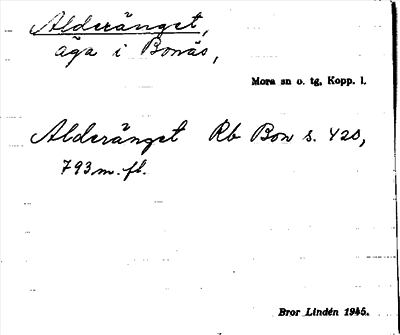 Alderänget,
äga i Bonäs,
Mora sn o. tg, Kopp. l.
Alderänget Rb Bon s. 420,
793 m. fl.
Bror Lindén 1945.